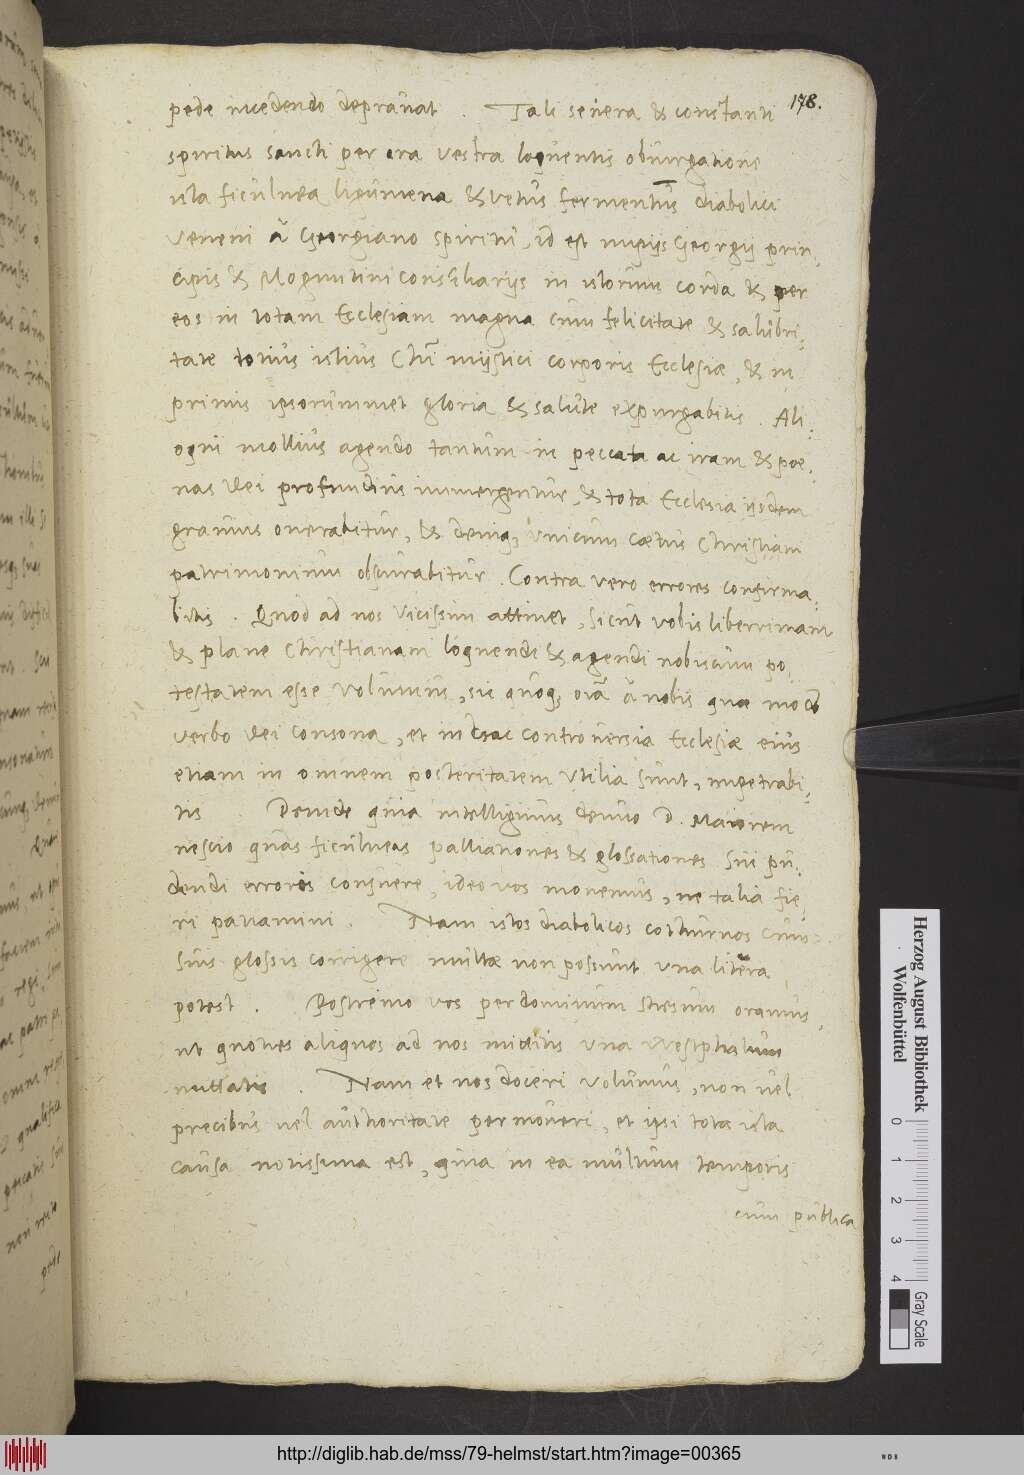 178.
pede incedendo deprauat . Tali seuera & constanti
spiritus sancti per ora vestra loquentis obiurgatione
ista ficulnea ligumena & vetus fermentū diabolici
veneni à Georgiano spiritu, id est impijs Georgij prin-
cipis & Moguntini consiliarijs in istorum corda & per
eos in totam Ecclesiam magna cum felicitate & salubri-
tate totius istius Chri mystici corporis Ecclesiæ, & in
primis ipsorummet gloria & salute expurgabitis . Ali-
oqui mollius agendo tantum in peccata ac iram & poe-
nas Dei profundius immergentur, & tota Ecclesia ijsdem
grauius onerabitur, & deniq, vnicum cætus Christiani
patrimonium obscurabitur . Contra vero errores confirma-
bitis . Quod ad nos vicissim attinet, sicut vobis liberrimam
& plane Christianam loquendi & agendi nobiscum po-
testatem esse volumus, sic quoq, oīa à nobis quæ modo
verbo Dei consona, et in hac controuersia Ecclesiæ eius
etiam in omnem posteritatem vtilia sunt, impetrabi-
tis . Deinde quia intelligimus denuo D. Maiorem
nescio quas ficulneas palliationes & glossationes sui pu-
dendi erroris consuere, ideo vos monemus, ne talia fie-
ri patiamini . Nam istos diabolicos cothurnos cum
suis glossis corrigere multæ non possunt, una litera
potest . Postremo vos per dominum Iesum oramus,
ut quoties aliquos ad nos mittitis una Westphalum
mittatis . Nam et nos doceri volumus, non vel
precibus vel authoritate permoueri, et ipsi tota ista
causa notissima est, quia in ea multum temporis
cum publica
Herzog August Bibliothek
Wolfenbüttel
0 1 2 3 4
Gray Scale
http://diglib.hab.de/mss/79-helmst/start.htm?image=00365